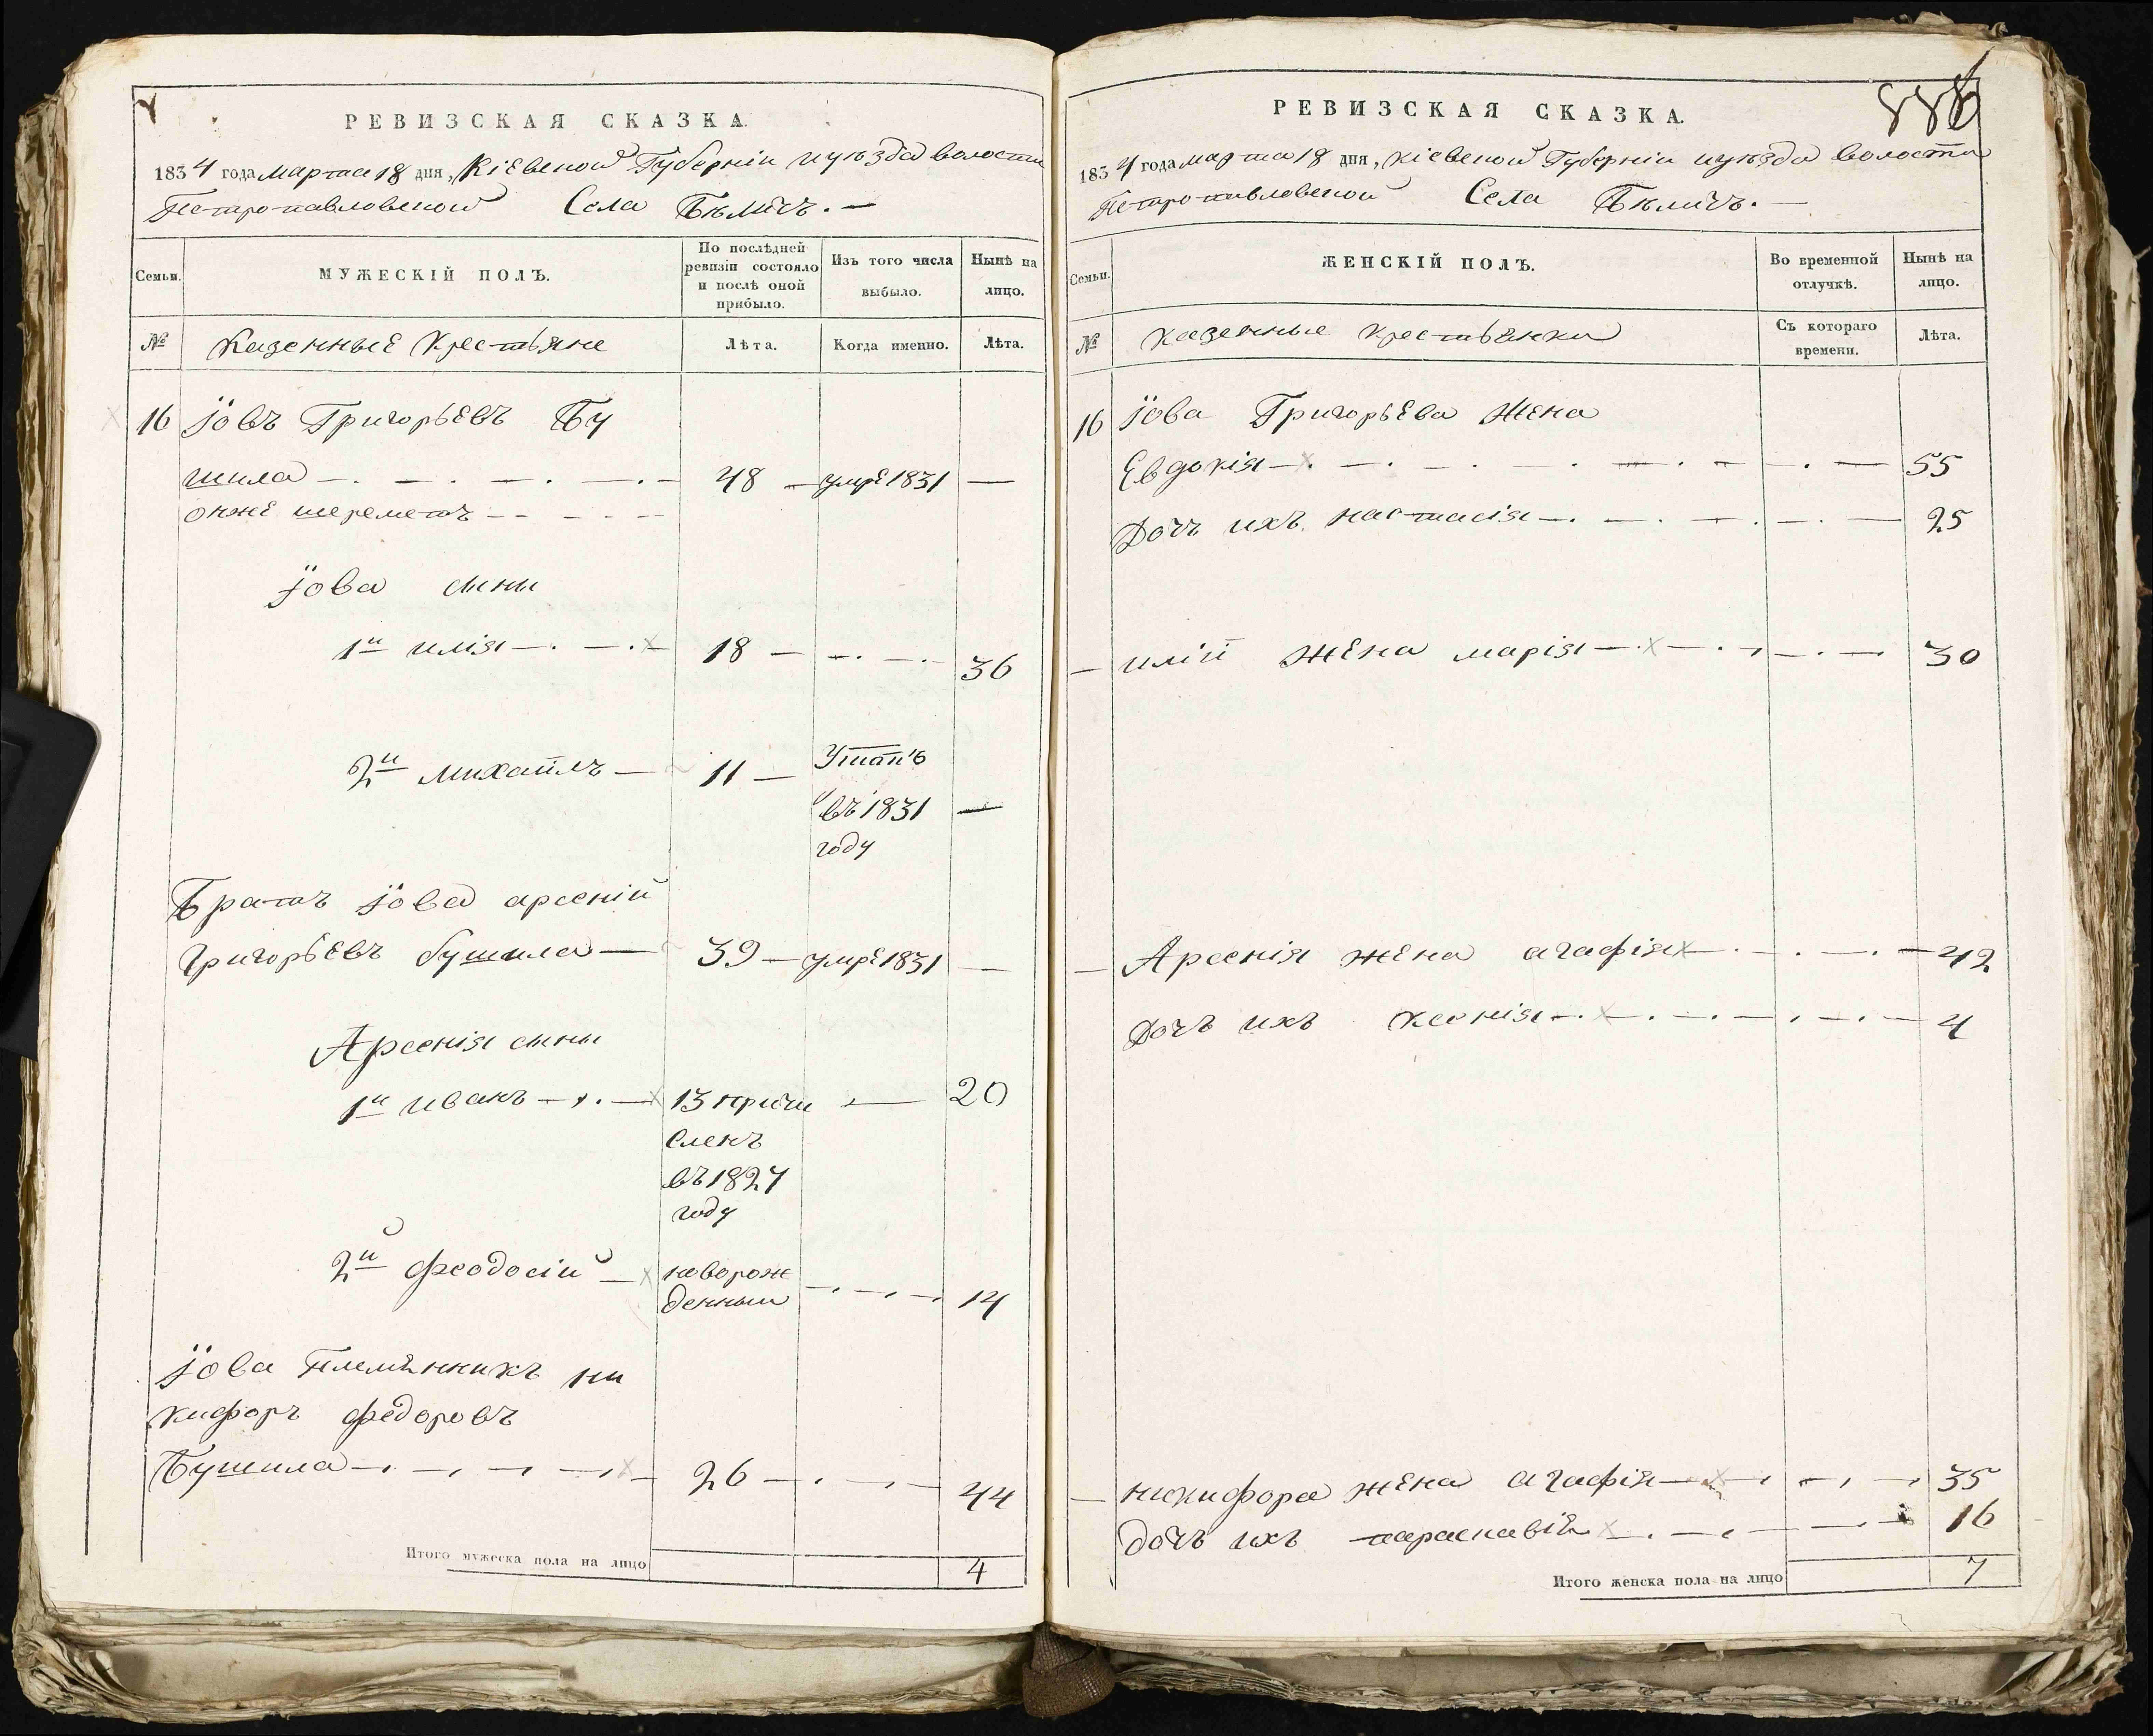 РЕВИЗСКАЯ СКАЗКА.
1834 года марта 18 дня, Кіевской Губерніи и уѣзда волости
Петропавловской Села Бѣличъ. —
Семьи.
МУЖЕСКІЙ ПОЛЪ.
По послѣдней ревизіи состояло и послѣ оной прибыло.
Изъ того числа выбыло.
Нынѣ на лицо.
№
Казенные Крестьяне
Лѣта.
Когда именно.
Лѣта.
16 Іовъ Григорьевъ Бу
шила — 48 — умре 1831 —
онже шереметъ
Іова сыны
1й илія — 18 — 36
2й михаилъ — 11 —
въ 1831 —
году
Братъ Іова арсеній
Григорьевъ бушила — 39 — умре 1831 —
Арсенія сыны
1й иванъ — 13 причи — 20
сленъ
въ 1827
году
2й феодосій — поворож
денный — 14
Іова племянникъ ни
кифоръ федоровъ
Бушила — 26 — 44
Итого мужеска пола на лицо 4
886
РЕВИЗСКАЯ СКАЗКА.
1834 года марта 18 дня, кіевской Губерніи и уѣзда волости
Петропавловской Села Бѣличъ. —
Семьи.
ЖЕНСКІЙ ПОЛЪ.
Во временной отлучкѣ.
Нынѣ на лицо.
№
казенные крестьянки
Съ котораго времени.
Лѣта.
16 Іова Григорьева Жена
Евдокія — 55
Дочь ихъ настасія — 25
— иліи жена марія — 30
— Арсенія жена агафія — 42
Дочь ихъ ксенія — 4
— никифора жена агафія — 35
дочь ихъ параскавія — 16
Итого женска пола на лицо 7